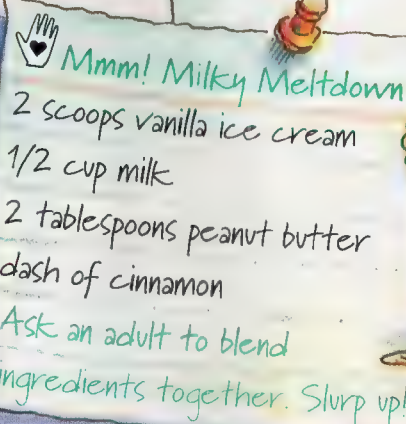 Mmm! Milky Meltdown
2 scoops vanilla ice cream
1/2 cup milk
2 tablespoons peanut butter
dash of cinnamon
Ask an adult to blend
ingredients together. Slurp up!